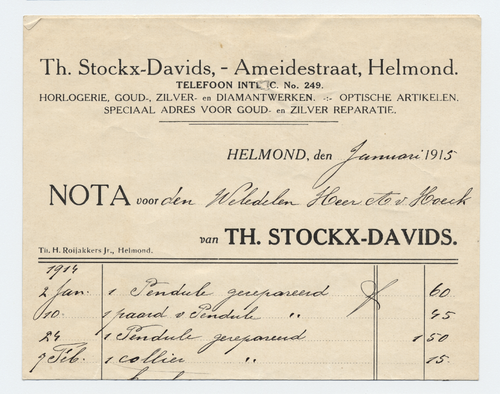 Th. Stockx-Davids, - Ameidestraat, Helmond.
TELEFOON INT C. No. 249.
HORLOGERIE, GOUD-, ZILVER- en DIAMANTWERKEN. -:- OPTISCHE ARTIKELEN.
SPECIAAL ADRES VOOR GOUD- en ZILVER REPARATIE.
HELMOND, den Januari 1915
NOTA voor den Weledelen Heer A v. Hoeck
van TH. STOCKX-DAVIDS.
Th. H. Roijakkers Jr., Helmond.
1914
2 Jan. 1 Pendule gerepareerd f 60
10. 1 paard v Pendule " 45
24 1 Pendule gerepareerd 1 50
7 Feb. 1 collier " 15.